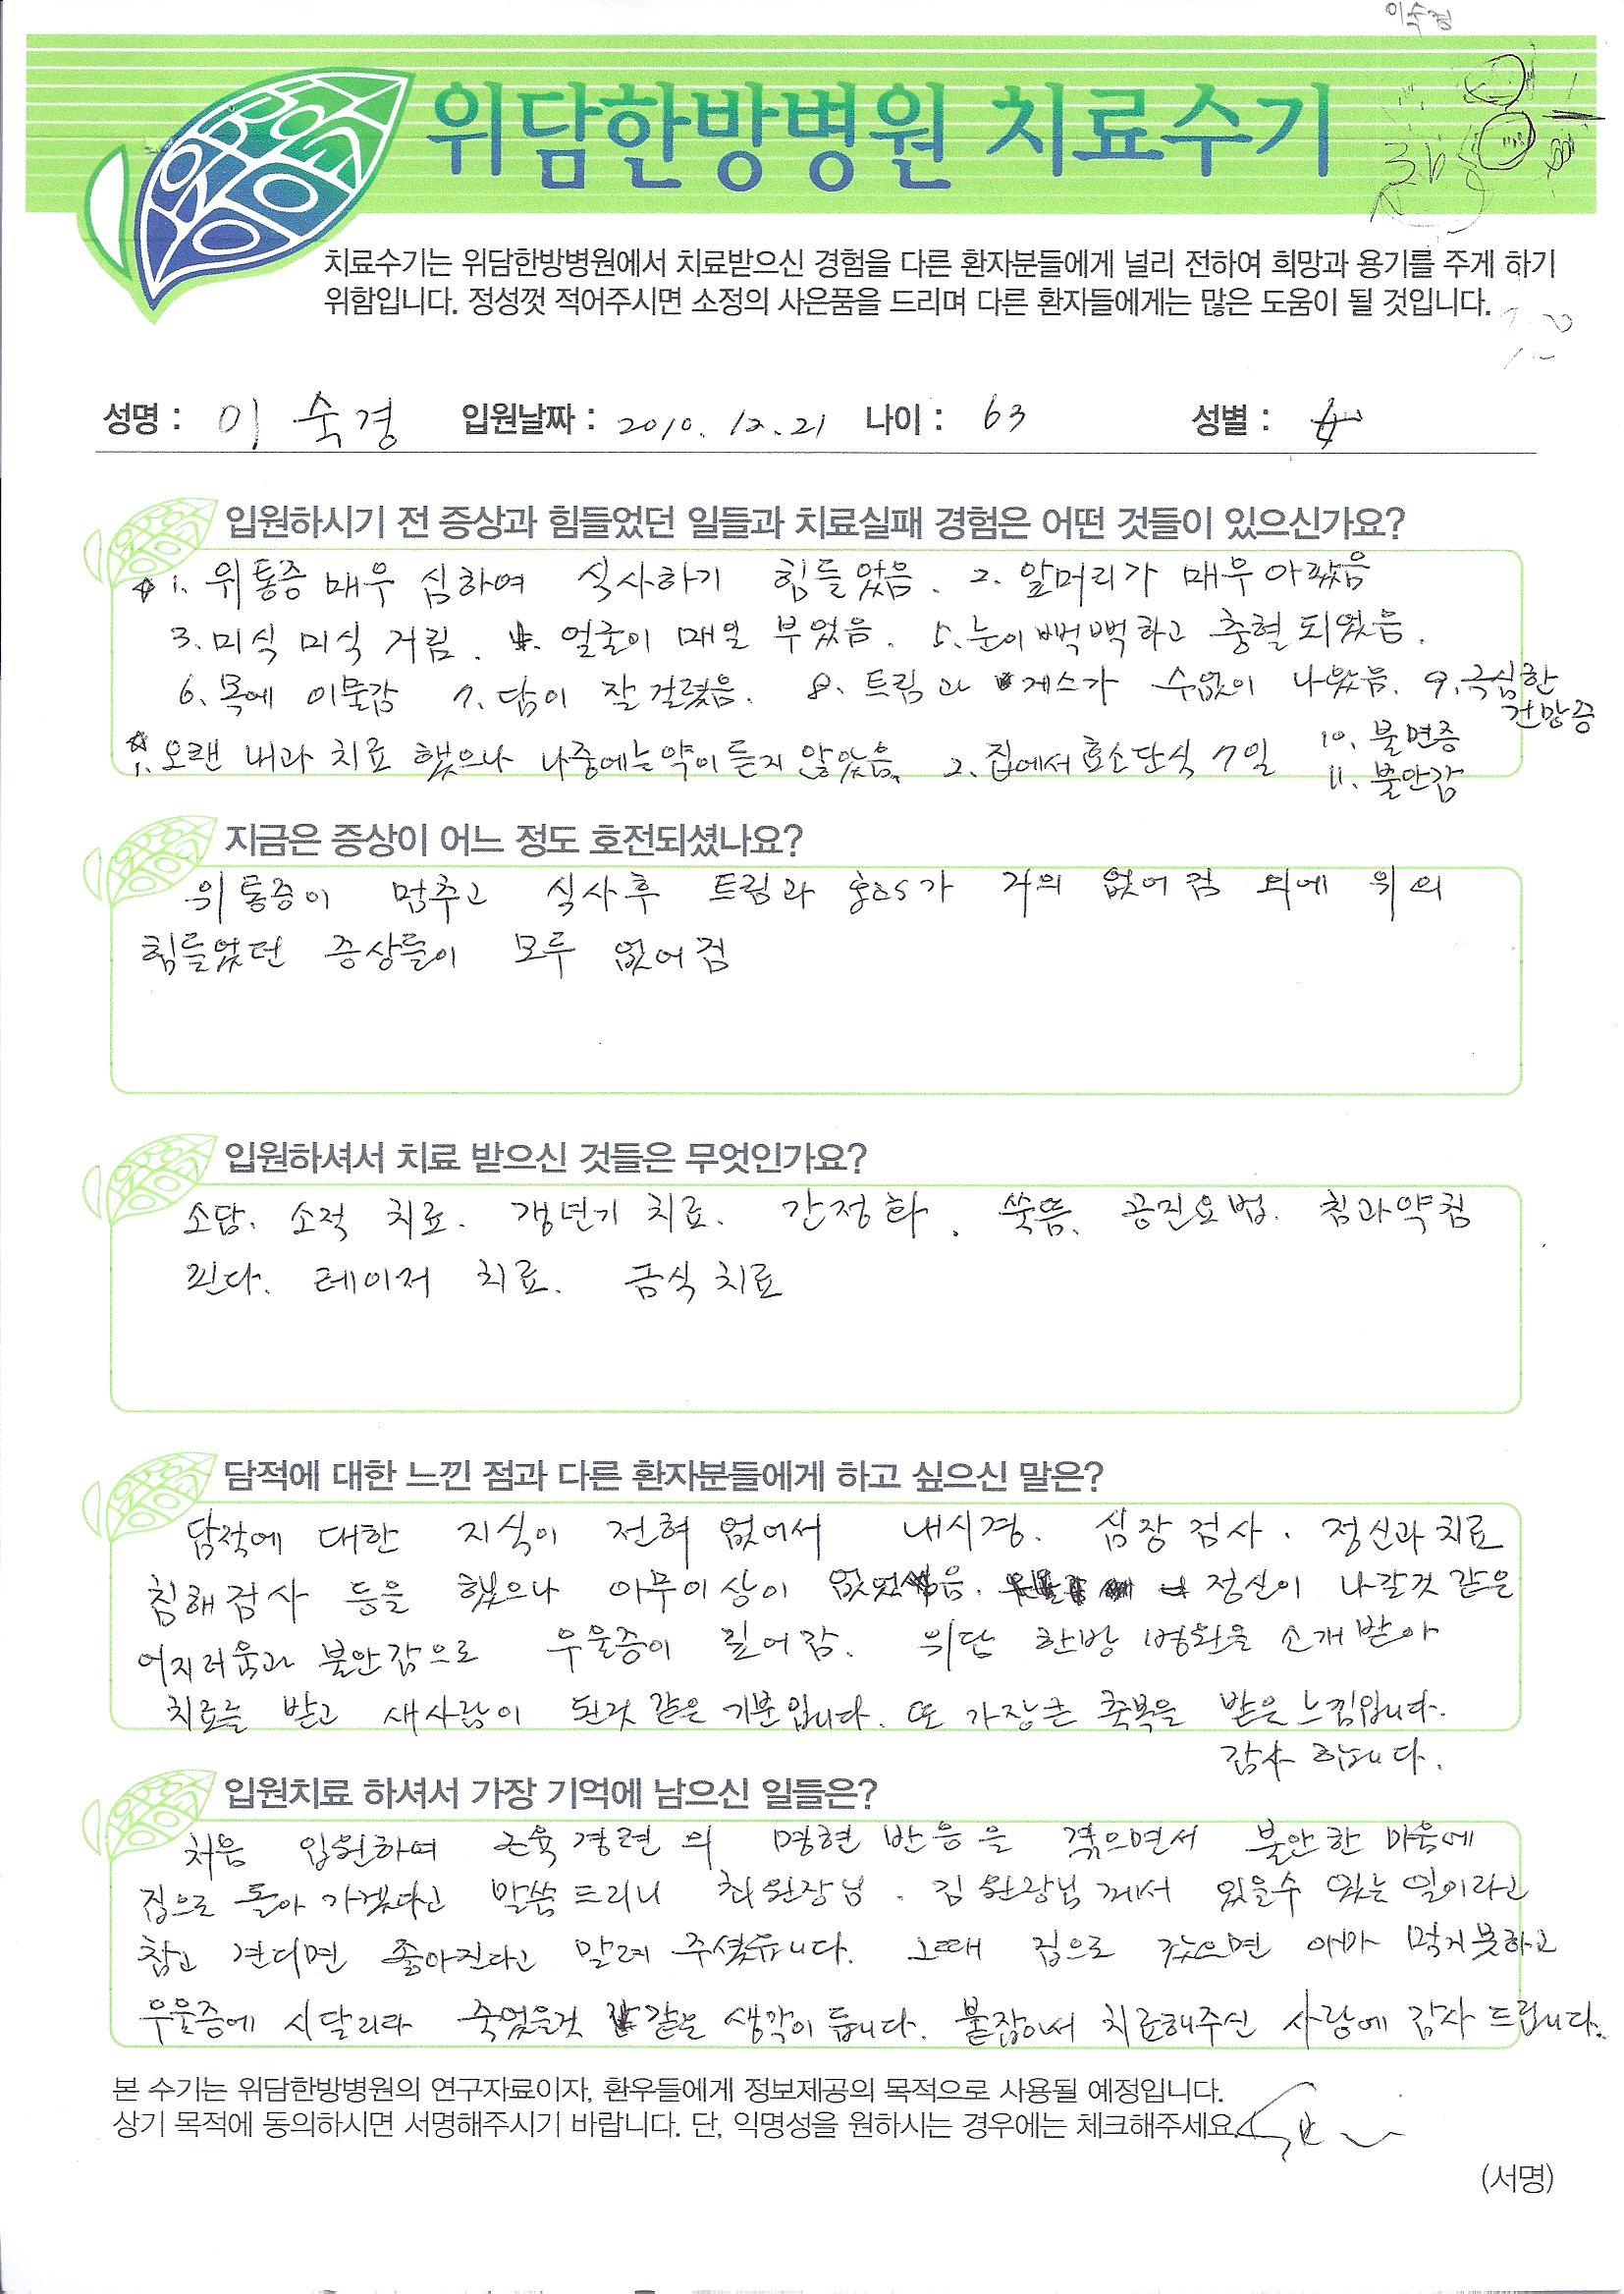 이숙경
위담한방병원 치료수기
치료수기는 위담한방병원에서 치료받으신 경험을 다른 환자분들에게 널리 전하여 희망과 용기를 주게 하기
위함입니다. 정성껏 적어주시면 소정의 사은품을 드리며 다른 환자들에게는 많은 도움이 될 것입니다.
성명 : 이 숙 경 입원날짜 : 2010. 12. 21 나이 : 63 성별 : 女
입원하시기 전 증상과 힘들었던 일들과 치료실패 경험은 어떤 것들이 있으신가요?
☆ 1. 위통증 매우 심하여 식사하기 힘들었음. 2. 앞머리가 매우 아팠음
3. 미식 미식 거림. 4. 얼굴이 매일 부었음. 5. 눈이 빽빽하고 충혈되였음.
6. 목에 이물감 7. 담이 잘 걸렸음. 8. 트림과 게스가 수없이 나왔음. 9. 극심한
건망증
☆ 1. 오랜 내과 치료 했으나 나중에는 약이 듣지 않았음. 2. 집에서 효소단식 7일
10. 불면증
11. 불안감
지금은 증상이 어느 정도 호전되셨나요?
위통증이 멈추고 식사후 트림과 gas가 거의 없어짐 외에 위의
힘들었던 증상들이 모두 없어짐
입원하셔서 치료 받으신 것들은 무엇인가요?
소담. 소적 치료. 갱년기 치료. 간정화. 쑥뜸. 공진요법. 침과약침
린다. 레이저 치료. 금식치료
담적에 대한 느낀 점과 다른 환자분들에게 하고 싶으신 말은?
담적에 대한 지식이 전혀 없어서 내시경. 심장검사. 정신과치료
침해검사 등을 했으나 아무이상이 없었음. 정신이 나갈것 같은
어지러움과 불안감으로 우울증이 깊어감. 위담 한방 병원을 소개받아
치료를 받고 새사람이 된것 같은 기분입니다. 또 가장큰 축복을 받은 느낌입니다.
감사 합니다.
입원치료 하셔서 가장 기억에 남으신 일들은?
처음 입원하여 근육경련의 명현반응을 겪으면서 불안한 마음에
집으로 돌아가겠다고 말씀드리니 최원장님. 김원장님께서 있을수 있는 일이라고
참고 견디면 좋아진다고 말려 주셨습니다. 그때 집으로 갔으면 아마 먹지못하고
우울증에 시달리다 죽었을것 같은 생각이 듭니다. 붙잡아서 치료해주신 사랑에 감사 드립니다.
본 수기는 위담한방병원의 연구자료이자, 환우들에게 정보제공의 목적으로 사용될 예정입니다.
상기 목적에 동의하시면 서명해주시기 바랍니다. 단, 익명성을 원하시는 경우에는 체크해주세요.
(서명)